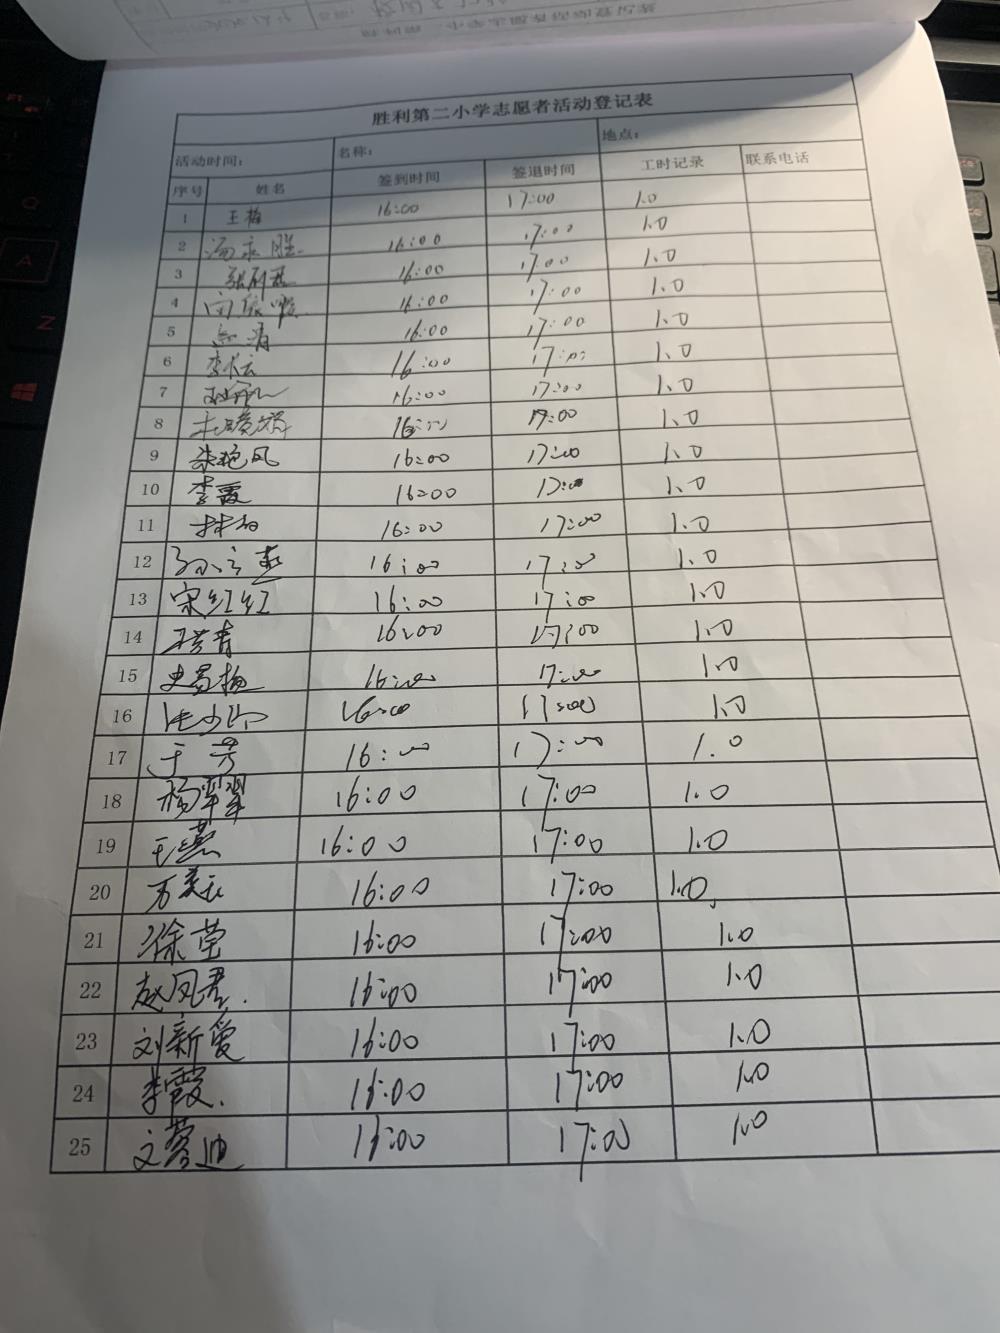 胜利第二小学志愿者活动登记表
活动时间: 名称: 地点:
序号 姓名 签到时间 签退时间 工时记录 联系电话
1 王梅 16:00 17:00 1.0
2 16:00 17:00 1.0
3 16:00 17:00 1.0
4 16:00 17:00 1.0
5 16:00 17:00 1.0
6 16:00 17:00 1.0
7 16:00 17:00 1.0
8 16:00 17:00 1.0
9 朱艳风 16:00 17:00 1.0
10 李霞 16:00 17:00 1.0
11 16:00 17:00 1.0
12 16:00 17:00 1.0
13 宋红红 16:00 17:00 1.0
14 16:00 17:00 1.0
15 16:00 17:00 1.0
16 16:00 17:00 1.0
17 于芳 16:00 17:00 1.0
18 杨翠翠 16:00 17:00 1.0
19 王燕 16:00 17:00 1.0
20 16:00 17:00 1.0
21 徐莹 16:00 17:00 1.0
22 赵风君. 16:00 17:00 1.0
23 刘新爱 16:00 17:00 1.0
24 李霞. 16:00 17:00 1.0
25 16:00 17:00 1.0